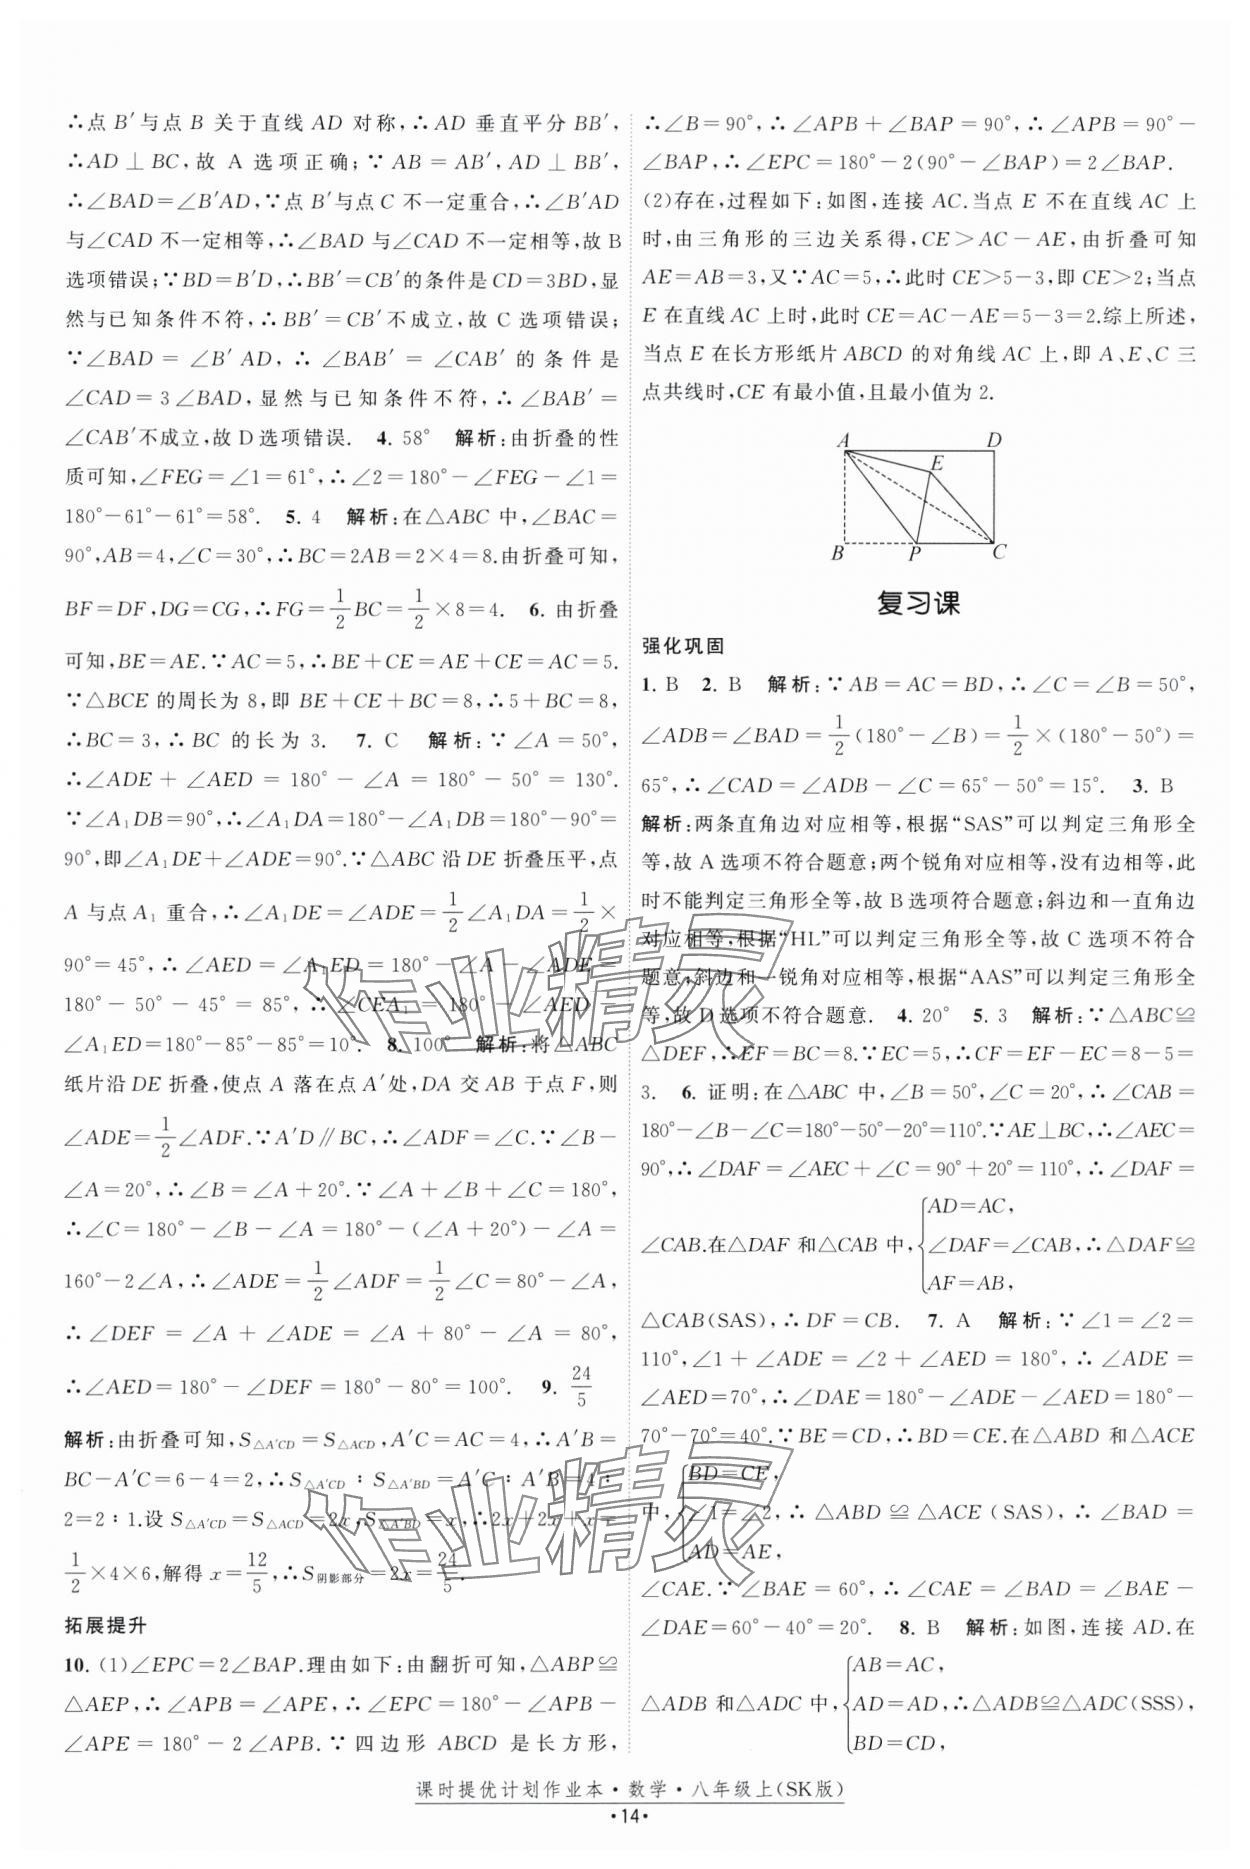 ∴点 B′与点 B 关于直线 AD 对称,∴AD 垂直平分 BB′,
∴AD⊥BC,故 A 选项正确;∵AB=AB′,AD⊥BB′,
∴∠BAD=∠B′AD,∵点 B′与点 C 不一定重合,∴∠B′AD
与∠CAD 不一定相等,∴∠BAD 与∠CAD 不一定相等,故 B
选项错误;∵BD=B′D,∴BB′=CB′的条件是 CD=3BD,显
然与已知条件不符,∴BB′=CB′不成立,故 C 选项错误;
∵∠BAD=∠B′AD,∴∠BAB′=∠CAB′的条件是
∠CAD=3∠BAD,显然与已知条件不符,∴∠BAB′=
∠CAB′不成立,故 D 选项错误. 4. 58° 解析:由折叠的性
质可知,∠FEG=∠1=61°,∴∠2=180°-∠FEG-∠1=
180°-61°-61°=58°. 5. 4 解析:在△ABC 中,∠BAC=
90°,AB=4,∠C=30°,∴BC=2AB=2×4=8.由折叠可知,
BF=DF,DG=CG,∴FG=1/2BC=1/2×8=4. 6. 由折叠
可知,BE=AE.∵AC=5,∴BE+CE=AE+CE=AC=5.
∵△BCE 的周长为 8,即 BE+CE+BC=8,∴5+BC=8,
∴BC=3,∴BC 的长为 3. 7. C 解析:∵∠A=50°,
∴∠ADE+∠AED=180°-∠A=180°-50°=130°.
∵∠A₁DB=90°,∴∠A₁DA=180°-∠A₁DB=180°-90°=
90°,即∠A₁DE+∠ADE=90°.∵△ABC 沿 DE 折叠压平,点
A 与点 A₁ 重合,∴∠A₁DE=∠ADE=1/2∠A₁DA=1/2×
90°=45°,∴∠AED=∠A₁ED=180°-∠A-∠ADE=
180°-50°-45°=85°,∴∠CEA₁=180°-∠AED-
∠A₁ED=180°-85°-85°=10°. 8. 100° 解析:将△ABC
纸片沿 DE 折叠,使点 A 落在点 A′处,DA 交 AB 于点 F,则
∠ADE=1/2∠ADF.∵A′D∥BC,∴∠ADF=∠C.∵∠B-
∠A=20°,∴∠B=∠A+20°.∵∠A+∠B+∠C=180°,
∴∠C=180°-∠B-∠A=180°-(∠A+20°)-∠A=
160°-2∠A,∴∠ADE=1/2∠ADF=1/2∠C=80°-∠A,
∴∠DEF=∠A+∠ADE=∠A+80°-∠A=80°,
∴∠AED=180°-∠DEF=180°-80°=100°. 9. 24/5
解析:由折叠可知,S△A′CD=S△ACD,A′C=AC=4,∴A′B=
BC-A′C=6-4=2,∴S△A′CD∶S△A′BD=A′C∶A′B=4∶
2=2∶1.设 S△A′CD=S△ACD=2x,S△A′BD=x,∴2x+2x+x=
1/2×4×6,解得 x=12/5,∴S阴影部分=2x=24/5.
拓展提升
10. (1)∠EPC=2∠BAP.理由如下:由翻折可知,△ABP≌
△AEP,∴∠APB=∠APE,∴∠EPC=180°-∠APB-
∠APE=180°-2∠APB.∵四边形 ABCD 是长方形,
∴∠B=90°,∴∠APB+∠BAP=90°,∴∠APB=90°-
∠BAP,∴∠EPC=180°-2(90°-∠BAP)=2∠BAP.
(2)存在,过程如下:如图,连接 AC.当点 E 不在直线 AC 上
时,由三角形的三边关系得,CE>AC-AE,由折叠可知
AE=AB=3,又∵AC=5,∴此时 CE>5-3,即 CE>2;当点
E 在直线 AC 上时,此时 CE=AC-AE=5-3=2.综上所述,
当点 E 在长方形纸片 ABCD 的对角线 AC 上,即 A、E、C 三
点共线时,CE 有最小值,且最小值为 2.
A D
E
B P C
复习课
强化巩固
1. B 2. B 解析:∵AB=AC=BD,∴∠C=∠B=50°,
∠ADB=∠BAD=1/2(180°-∠B)=1/2×(180°-50°)=
65°,∴∠CAD=∠ADB-∠C=65°-50°=15°. 3. B
解析:两条直角边对应相等,根据“SAS”可以判定三角形全
等,故 A 选项不符合题意;两个锐角对应相等,没有边相等,此
时不能判定三角形全等,故 B 选项符合题意;斜边和一直角边
对应相等,根据“HL”可以判定三角形全等,故 C 选项不符合
题意;斜边和一锐角对应相等,根据“AAS”可以判定三角形全
等,故 D 选项不符合题意. 4. 20° 5. 3 解析:∵△ABC≌
△DEF,∴EF=BC=8.∵EC=5,∴CF=EF-EC=8-5=
3. 6. 证明:在△ABC 中,∠B=50°,∠C=20°,∴∠CAB=
180°-∠B-∠C=180°-50°-20°=110°.∵AE⊥BC,∴∠AEC=
90°,∴∠DAF=∠AEC+∠C=90°+20°=110°,∴∠DAF=
∠CAB.在△DAF 和△CAB 中,{AD=AC, ∠DAF=∠CAB, AF=AB, ∴△DAF≌
△CAB(SAS),∴DF=CB. 7. A 解析:∵∠1=∠2=
110°,∠1+∠ADE=∠2+∠AED=180°,∴∠ADE=
∠AED=70°,∴∠DAE=180°-∠ADE-∠AED=180°-
70°-70°=40°.∵BE=CD,∴BD=CE.在△ABD 和△ACE
中,{BD=CE, ∠1=∠2, AD=AE, ∴△ABD≌△ACE(SAS),∴∠BAD=
∠CAE.∵∠BAE=60°,∴∠CAE=∠BAD=∠BAE-
∠DAE=60°-40°=20°. 8. B 解析:如图,连接 AD.在
△ADB 和△ADC 中,{AB=AC, AD=AD, BD=CD, ∴△ADB≌△ADC(SSS),
课时提优计划作业本·数学·八年级上(SK版)
·14·
作业精灵
作业精灵